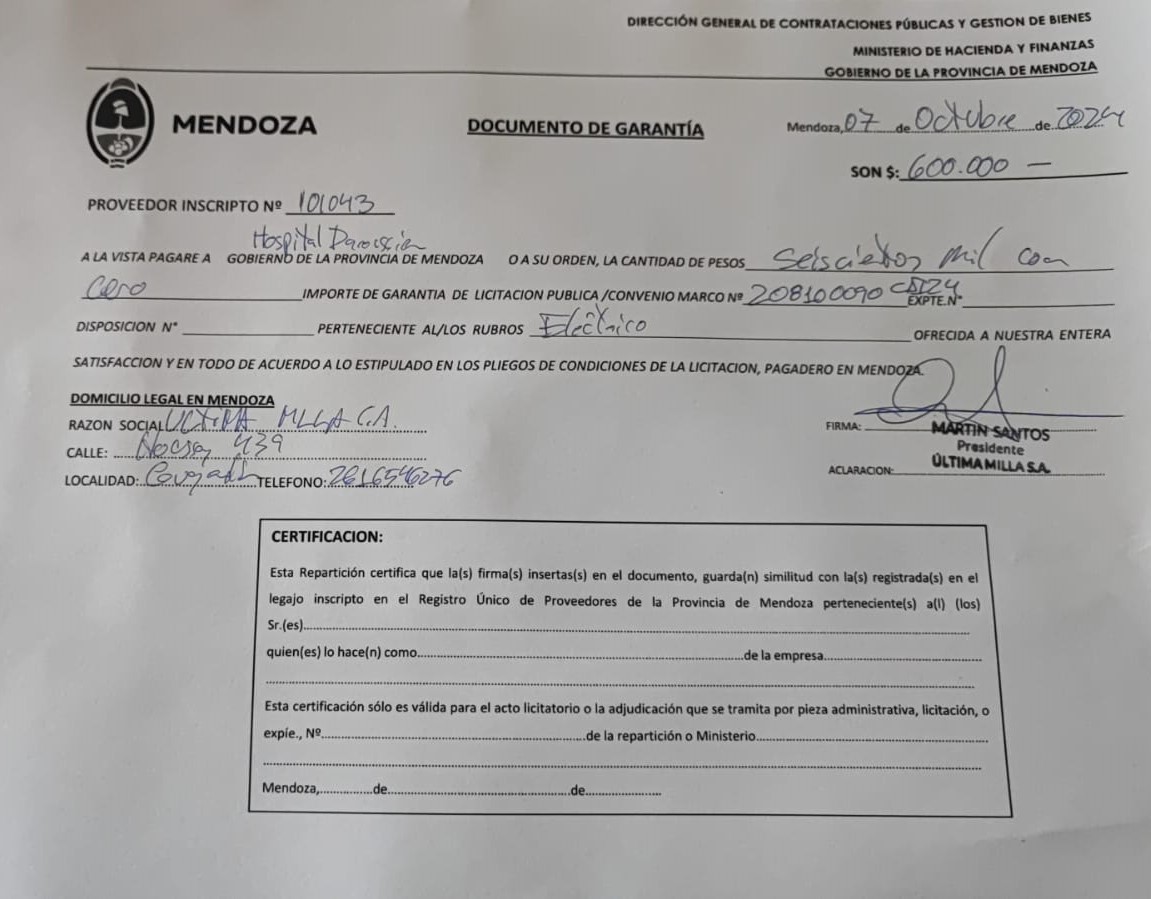 DIRECCIÓN GENERAL DE CONTRATACIONES PÚBLICAS Y GESTION DE BIENES
MINISTERIO DE HACIENDA Y FINANZAS
GOBIERNO DE LA PROVINCIA DE MENDOZA
MENDOZA
DOCUMENTO DE GARANTÍA
Mendoza, 07 de Octubre de 2024
SON $: 600.000 —
PROVEEDOR INSCRIPTO Nº 101043
Hospital
A LA VISTA PAGARE A GOBIERNO DE LA PROVINCIA DE MENDOZA O A SU ORDEN, LA CANTIDAD DE PESOS Seiscientos mil con
Cero IMPORTE DE GARANTIA DE LICITACION PUBLICA /CONVENIO MARCO Nº 208100090 EXPTE.N°
DISPOSICION N° PERTENECIENTE AL/LOS RUBROS Eléctrico OFRECIDA A NUESTRA ENTERA
SATISFACCION Y EN TODO DE ACUERDO A LO ESTIPULADO EN LOS PLIEGOS DE CONDICIONES DE LA LICITACION, PAGADERO EN MENDOZA.
DOMICILIO LEGAL EN MENDOZA
RAZON SOCIAL ULTIMA MILLA S.A.
CALLE: 439
LOCALIDAD: TELEFONO: 2616546276
FIRMA:
MARTIN SANTOS
Presidente
ACLARACION: ÚLTIMA MILLA S.A.
CERTIFICACION:
Esta Repartición certifica que la(s) firma(s) insertas(s) en el documento, guarda(n) similitud con la(s) registrada(s) en el
legajo inscripto en el Registro Único de Proveedores de la Provincia de Mendoza perteneciente(s) a(l) (los)
Sr.(es)
quien(es) lo hace(n) como de la empresa
Esta certificación sólo es válida para el acto licitatorio o la adjudicación que se tramita por pieza administrativa, licitación, o
expíe., Nº de la repartición o Ministerio
Mendoza, de de